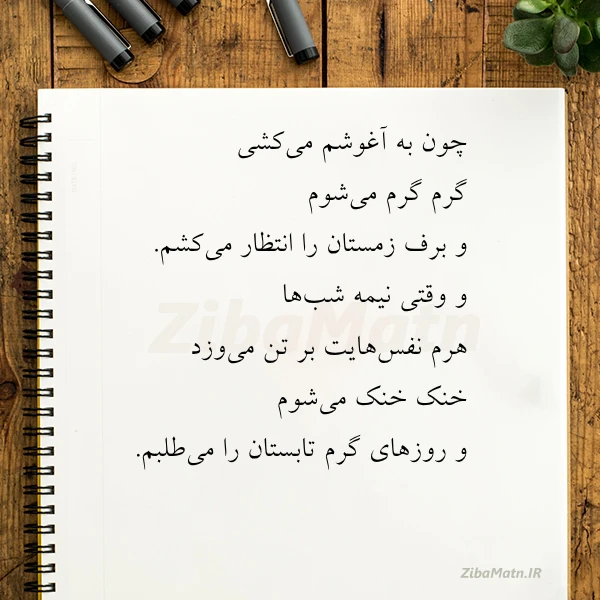 چون به آغوشم می‌کشی
گرم گرم می‌شوم
و برف زمستان را انتظار می‌کشم.
و وقتی نیمه شب‌ها
هرم نفس‌هایت بر تن می‌وزد
خنک خنک می‌شوم
و روزهای گرم تابستان را می‌طلبم.
ZibaMatn
ZibaMatn.IR